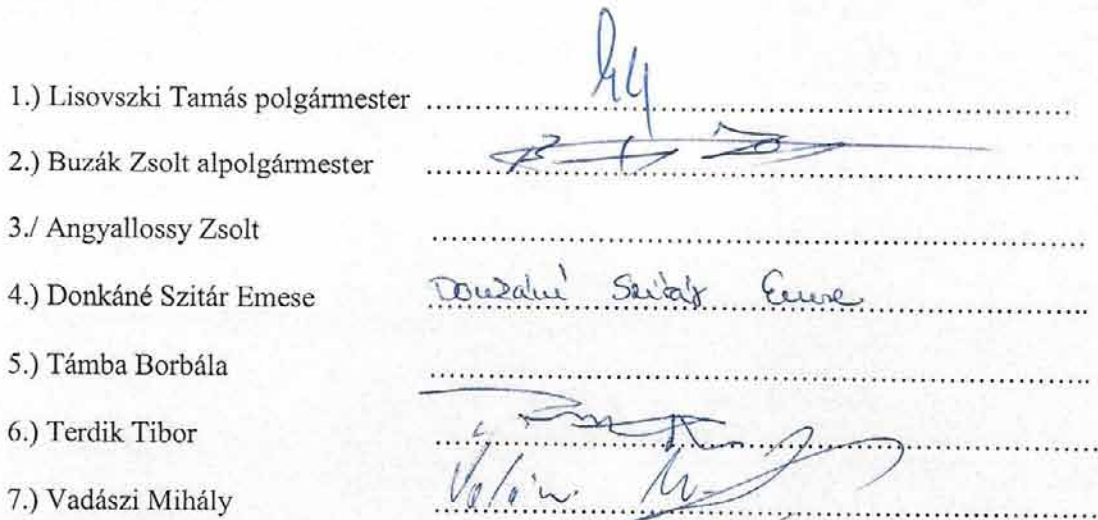 1.) Lisovszki Tamás polgármester ........................................
2.) Buzák Zsolt alpolgármester ........................................
3./ Angyallossy Zsolt ........................................
4.) Donkáné Szitár Emese Donkáné Szitár Emese
5.) Támba Borbála ........................................
6.) Terdik Tibor ........................................
7.) Vadászi Mihály ........................................